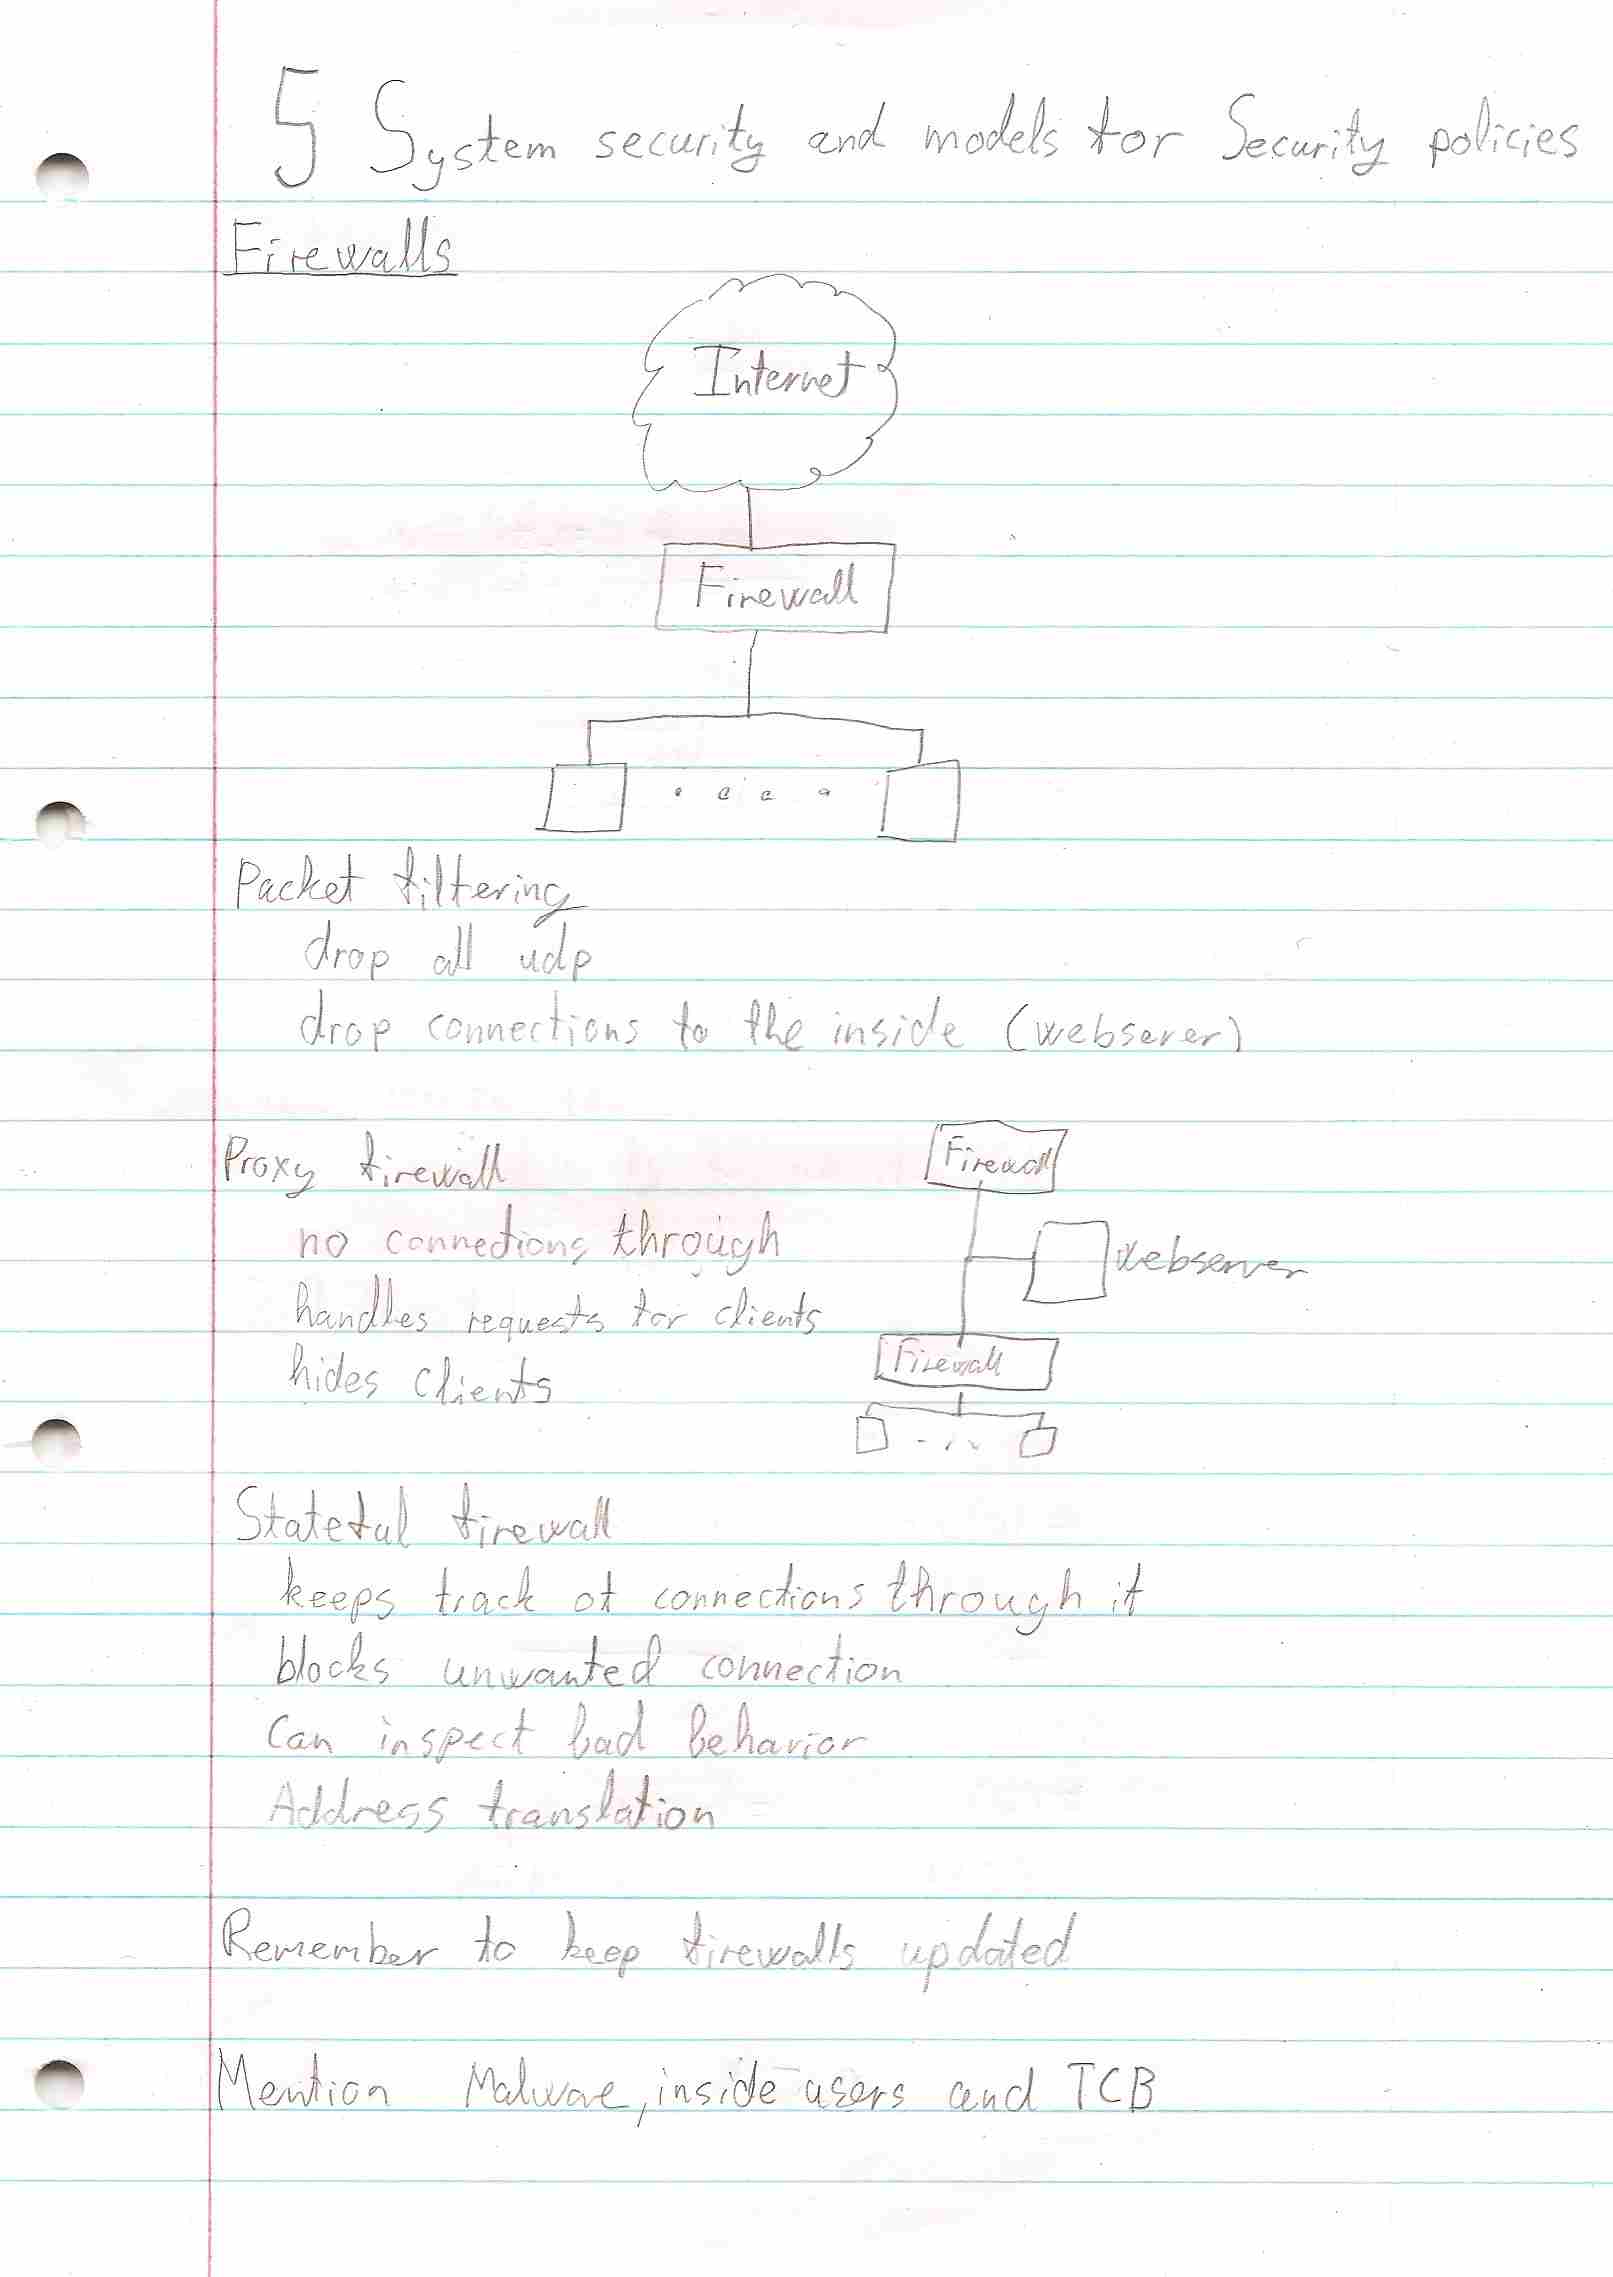 5 System security and models for Security policies
Firewalls
Internet
Firewall
Packet filtering
drop all udp
drop connections to the inside (webserver)
Proxy firewall
no connections through
handles requests for clients
hides clients
Firewall
Webserver
Firewall
Stateful firewall
keeps track of connections through it
blocks unwanted connection
Can inspect bad behavior
Address translation
Remember to keep firewalls updated
Mention Malware, inside users and TCB